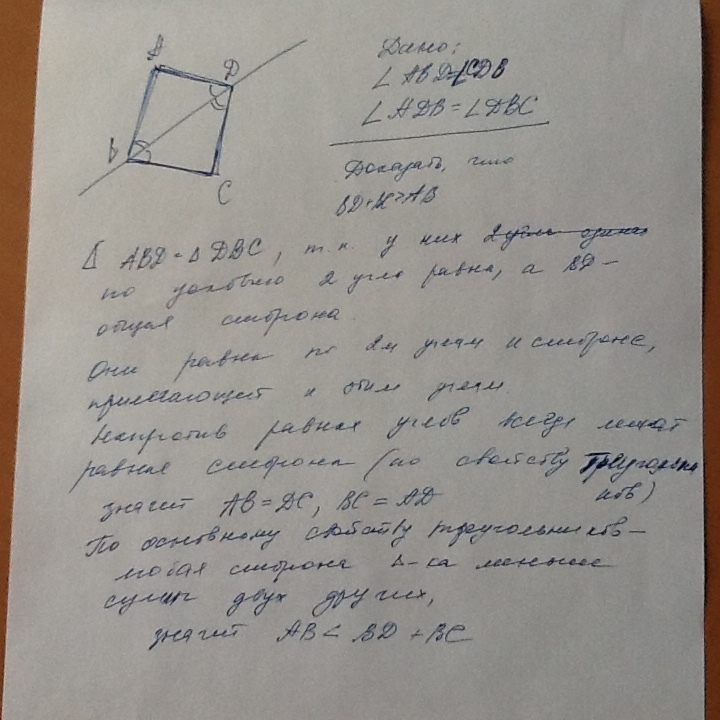 A
D
B
C
Дано:
∠ ABD=∠CDB
∠ ADB = ∠DBC
Доказать, что
BD+BC>AB
Δ ABD = Δ DBC, т.к. у них 2 угла
по условию 2 угла равны, а BD –
общая сторона.
Они равны по 2м углам и стороне,
прилегающей к этим углам
Напротив равных углов всегда лежат
равные стороны (по свойству треугольни
ков)
значит AB = DC, BC = AD
По основному свойству треугольников –
любая сторона Δ-ка меньше
суммы двух других,
значит AB < BD + BC